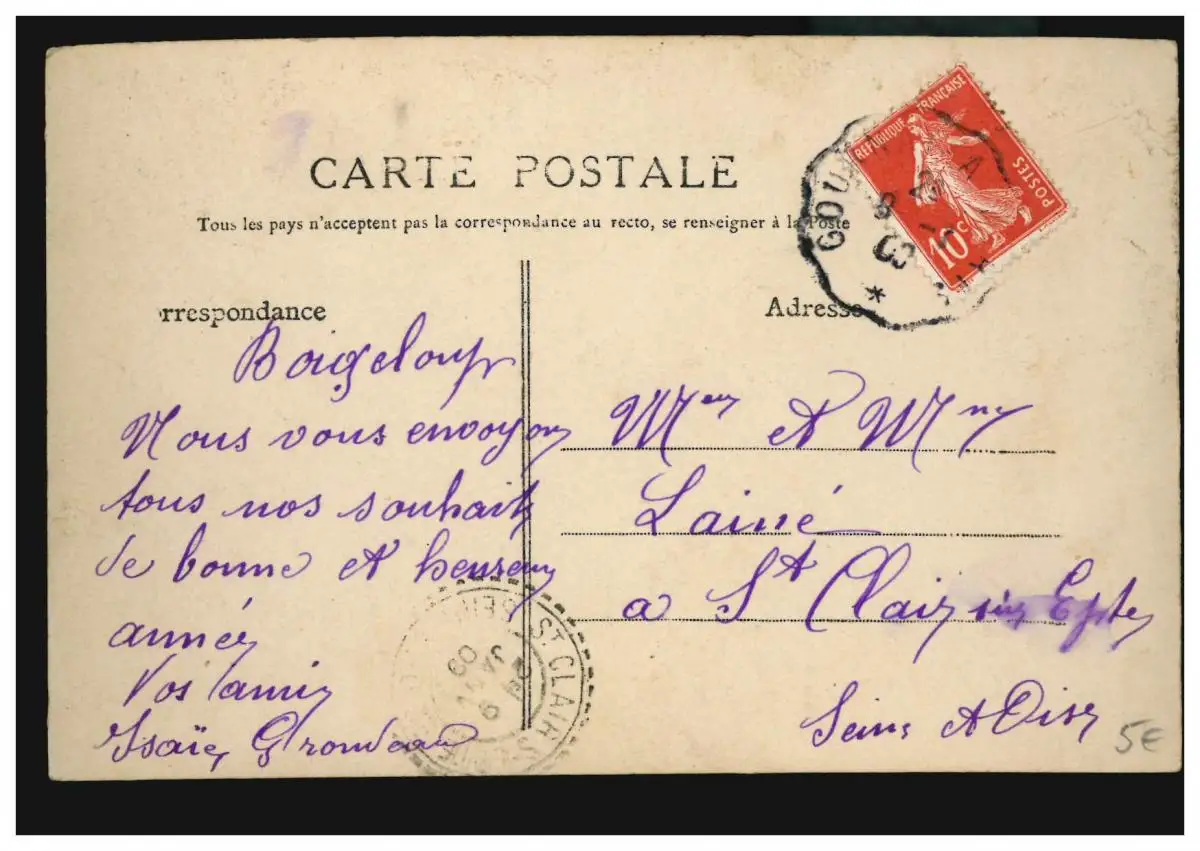 CARTE POSTALE
Tous les pays n'acceptent pas la correspondance au recto, se renseigner à la Poste
rrespondance
Adresse
RÉPUBLIQUE FRANÇAISE
POSTES
10c
Boisgeloup
Nous vous envoyons
tous nos souhaits
de bonne et heureuse
année
Vos amis
Isaïe Grondeau
Meur et Mme
Lainé
a St Clair sur Epte
Seine et Oise
ST CLAIR S
09
5€